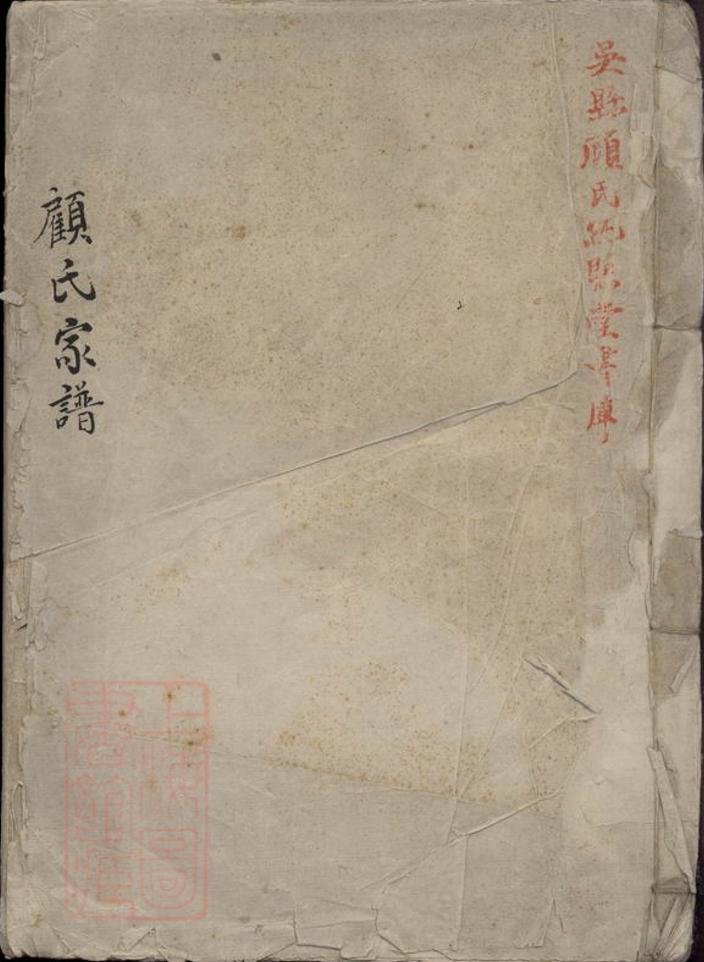 吳縣顧氏純熙堂書庫
顧氏家譜
上海圖書館藏